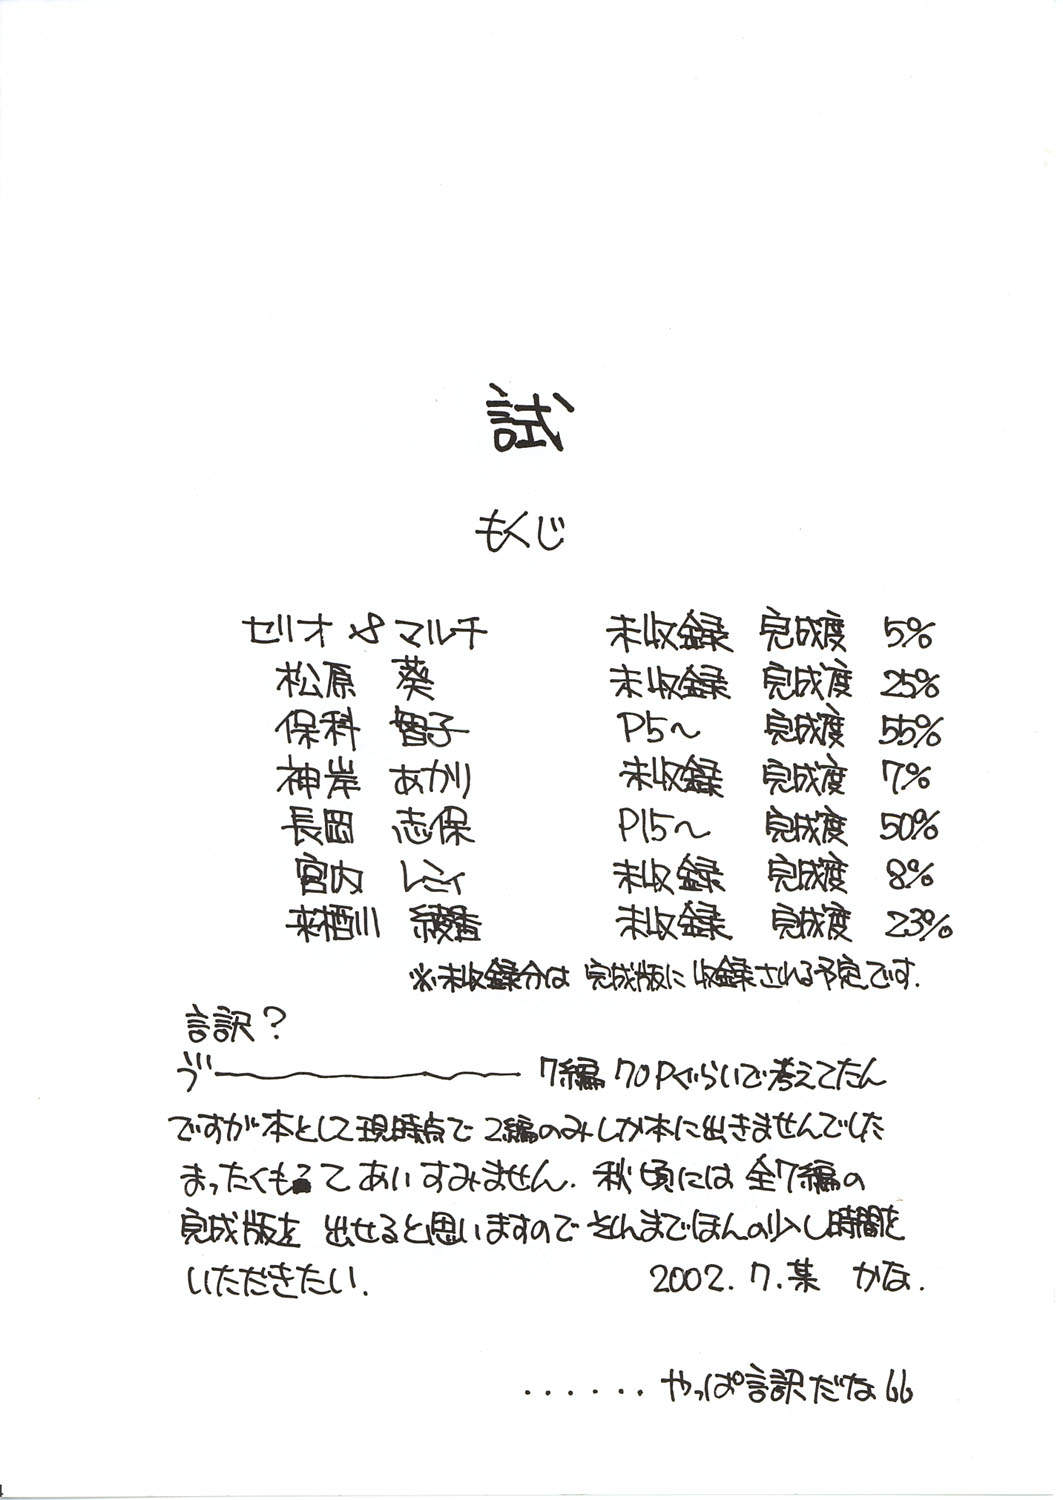 試
もくじ
セリオ & マルチ 未収録 完成度 5%
松原 葵 未収録 完成度 25%
保科 智子 P5〜 完成度 55%
神岸 あかり 未収録 完成度 7%
長岡 志保 P15〜 完成度 50%
宮内 レミィ 未収録 完成度 8%
来栖川 綾香 未収録 完成度 23%
※未収録分は 完成版に 収録される予定です.
言訳?
ヴ―――― 7編 70Pぐらいで考えてたん
ですが本として現時点で 2編のみしか本に出きませんでした
まったくもって あいすみません. 秋頃には 全7編の
完成版を 出せると思いますので それまでほんの少し時間を
いただきたい. 2002.7.某 かな.
......やっぱ言訳だな